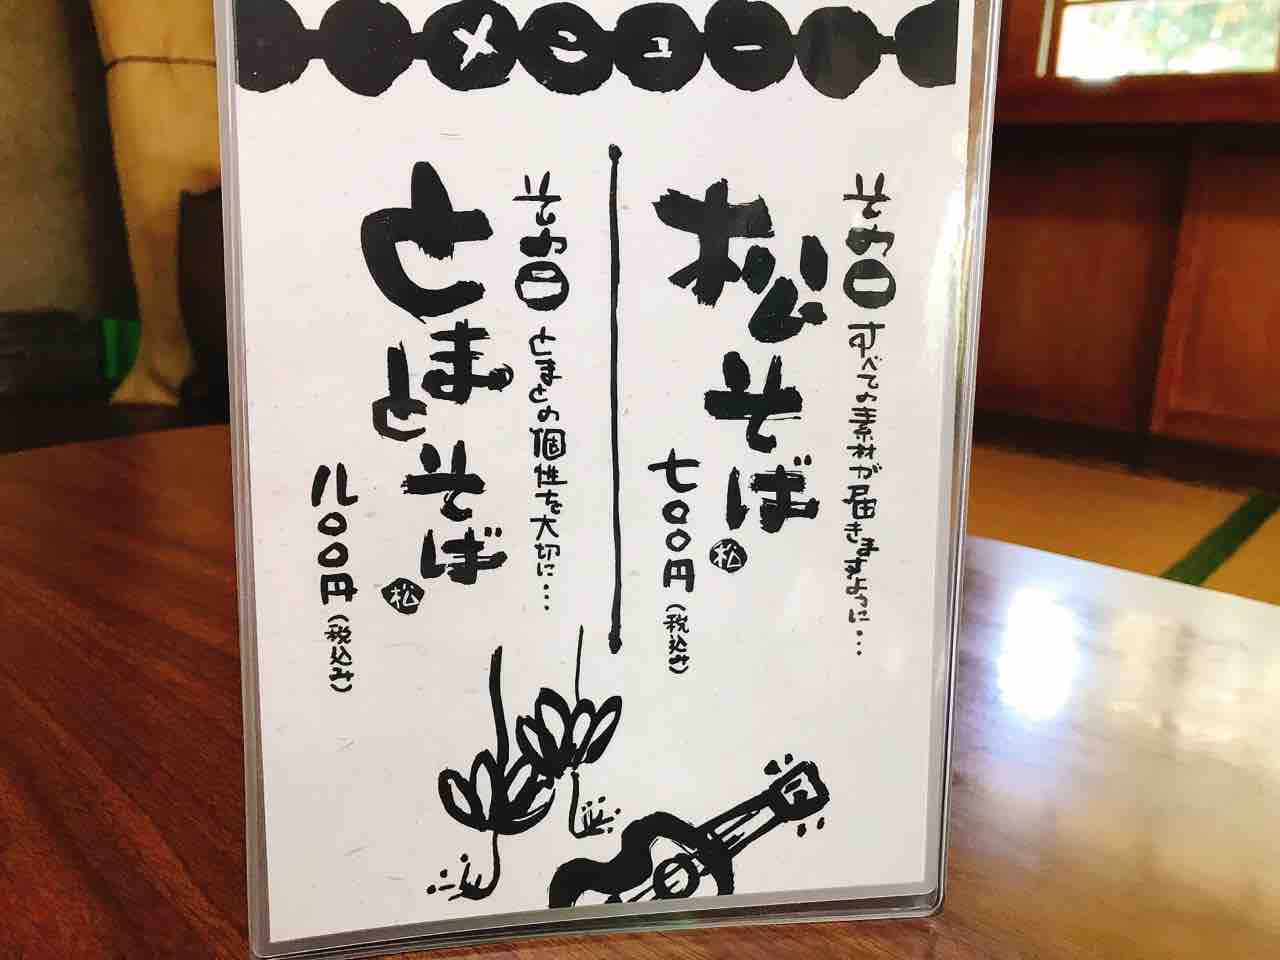 メニュー
その一
すべての素材が届きますように…
松そば
松
七〇〇円(税込み)
その二
とまとの個性を大切に…
とまとそば
松
八〇〇円(税込み)